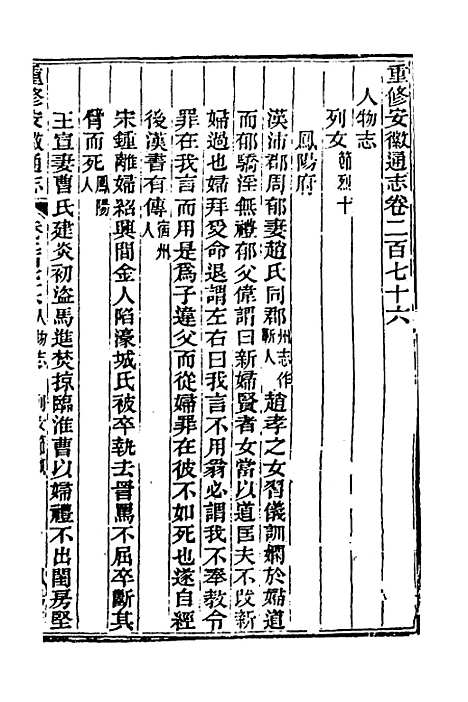 重修安徽通志卷二百七十六
人物志
列女節烈十
鳳陽府
漢沛郡周郁妻趙氏同郡州志作蘄人趙孝之女習儀訓嫻於婦道
而郁驕淫無禮郁父偉謂曰新婦賢者女當以道匡夫不改新
婦過也婦拜受命退謂左右曰我言不用翁必謂我不奉教令
罪在我言而用是為子違父而從婦罪在彼不如死也遂自經
後漢書有傳宿州人
宋鍾離婦紹興間金人陷濠城氏被卒執去詈罵不屈卒斷其
臂而死鳳陽人
王宣妻曹氏建炎初盜馬進焚掠臨淮曹以婦禮不出閨房堅
重修安徽通志
人物志
列女節